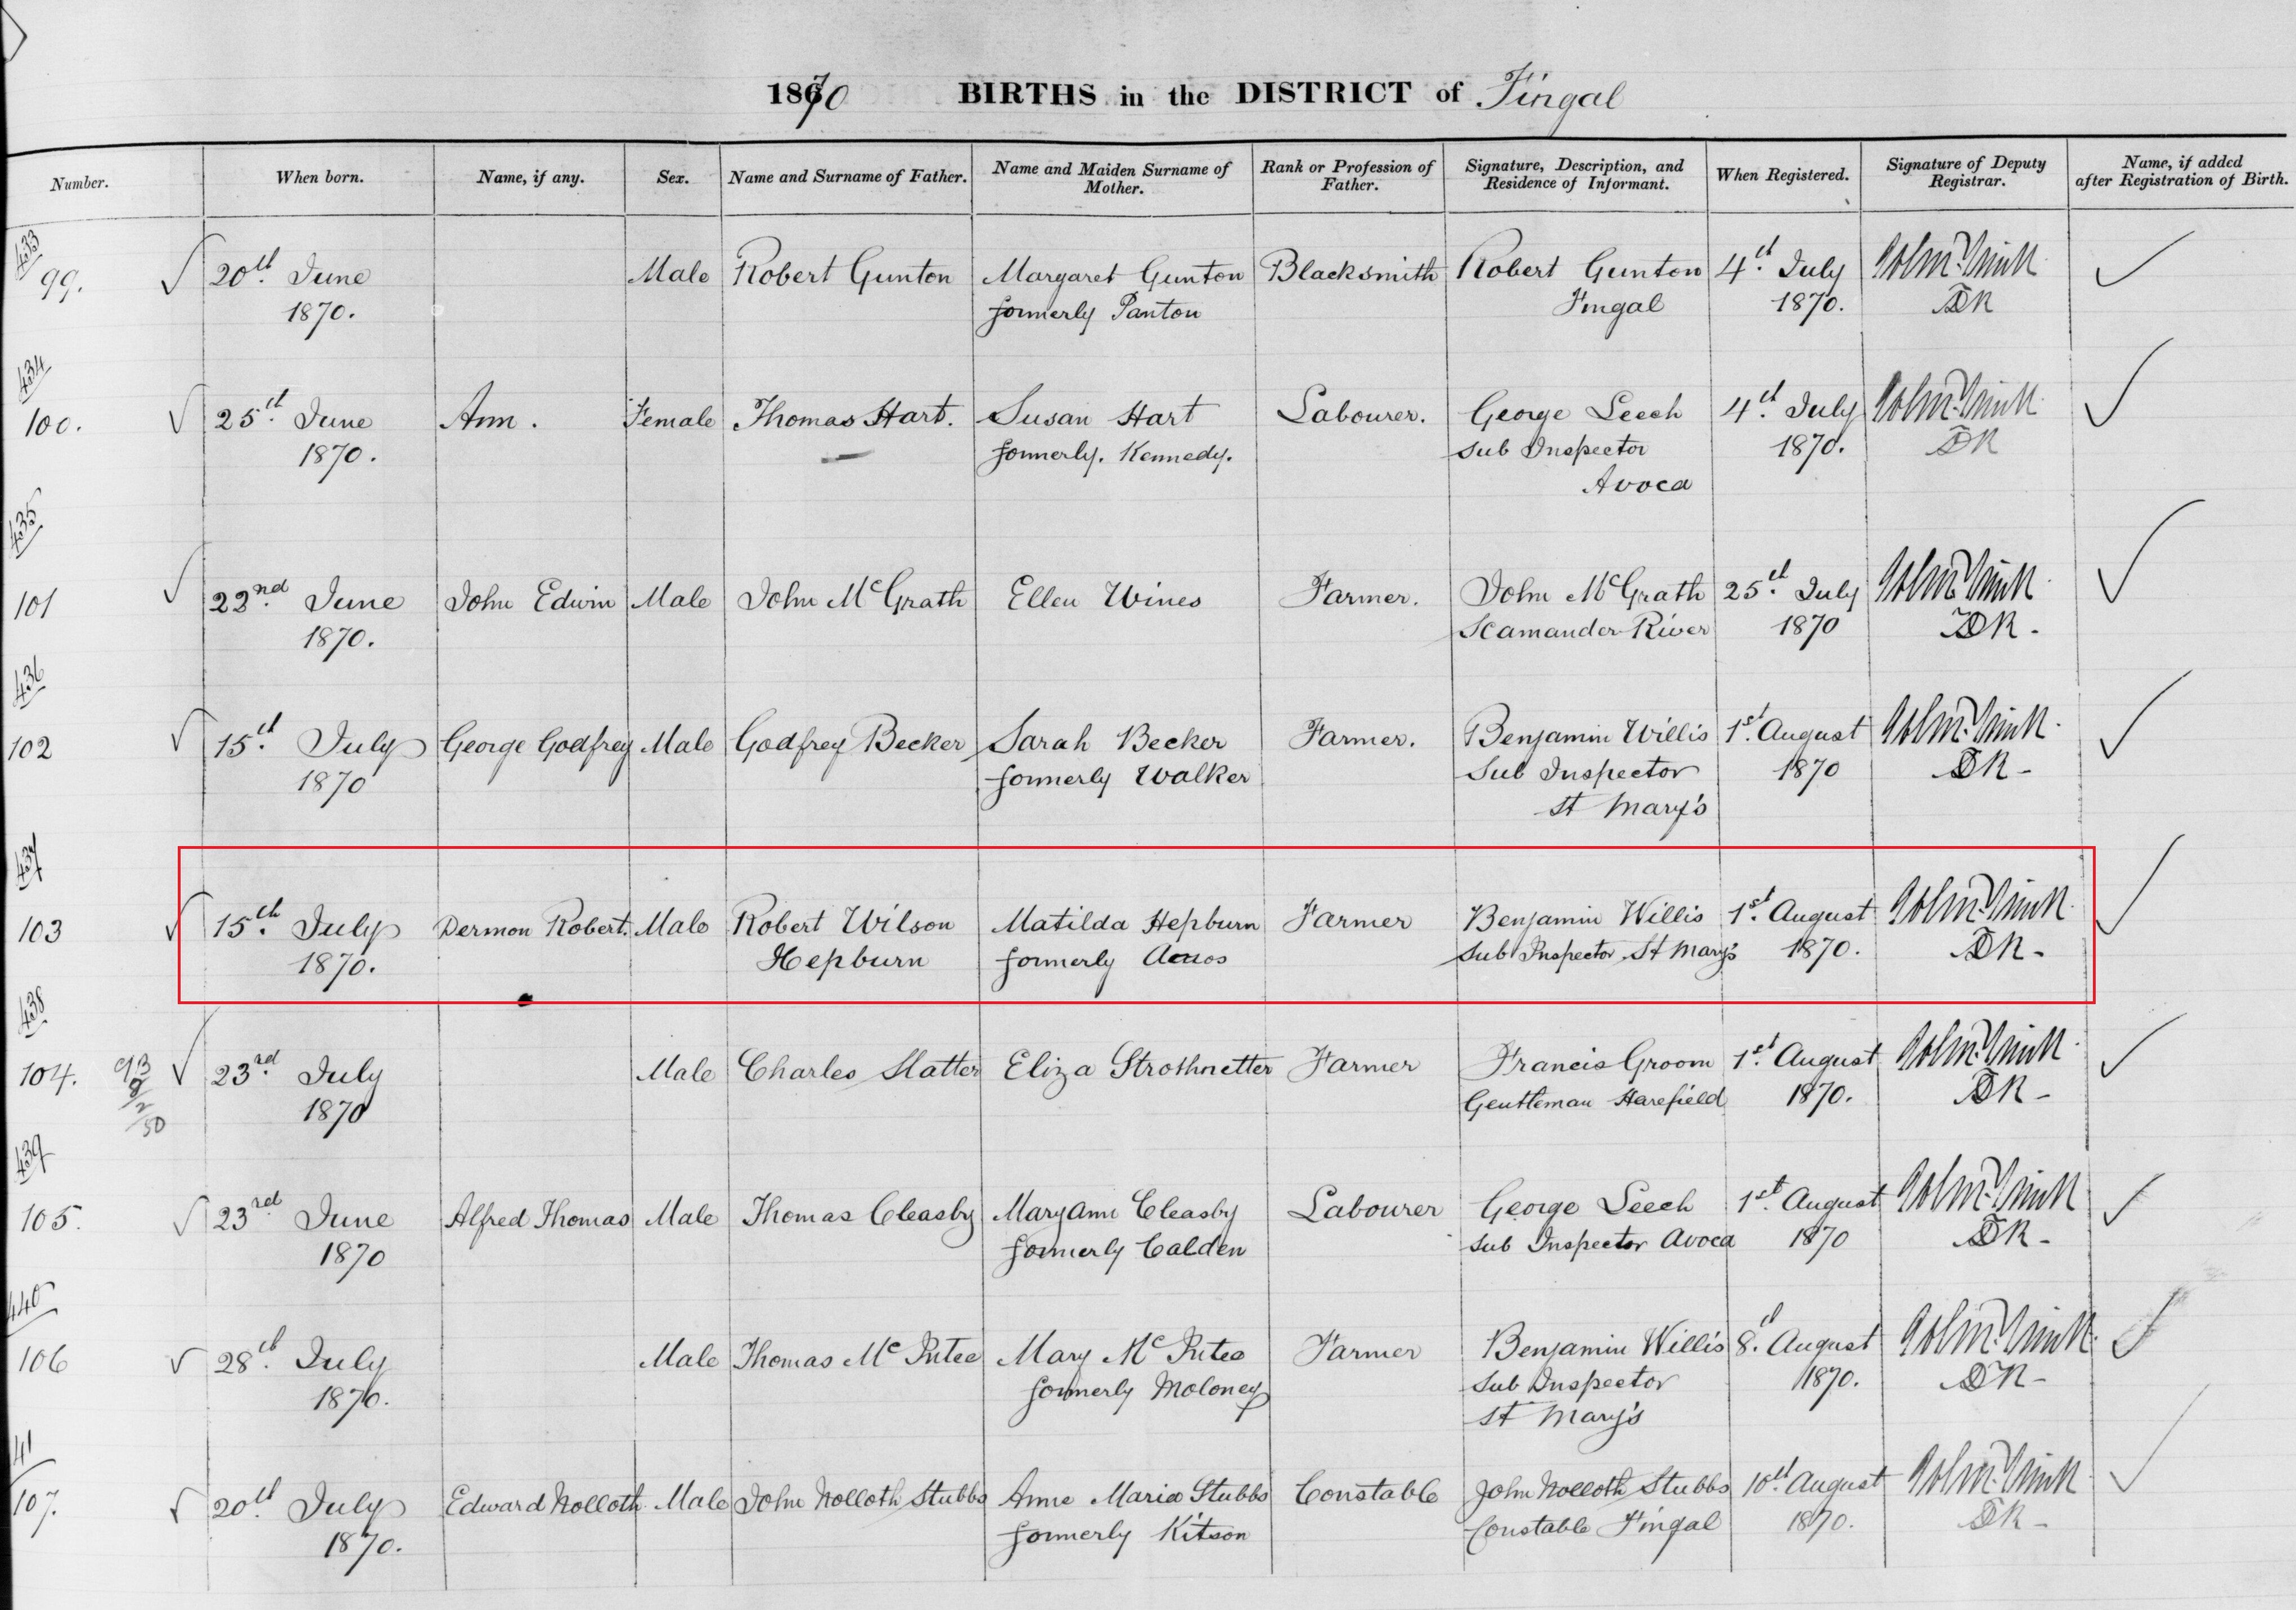 1870 BIRTHS in the DISTRICT of Fingal
Number. When born. Name, if any. Sex. Name and Surname of Father. Name and Maiden Surname of Mother. Rank or Profession of Father. Signature, Description, and Residence of Informant. When Registered. Signature of Deputy Registrar. Name, if added after Registration of Birth.
433
99. 20th June Male Robert Gunton Margaret Gunton Blacksmith Robert Gunton 4th July
1870. formerly Panton Fingal 1870. DR
434
100. 25th June Ann. Female Thomas Hart. Susan Hart Labourer. George Leech 4th July
1870. formerly. Kennedy. Sub Inspector 1870. DR
Avoca
435
101 22nd June John Edwin Male John McGrath Ellen Wines Farmer. John McGrath 25th July
1870. Scamander River 1870 DR-
436
102 15th July George Godfrey Male Godfrey Becker Sarah Becker Farmer. Benjamin Willis 1st August
1870 formerly Walker Sub Inspector 1870 DR-
St Mary's
437
103 15th July Dermon Robert. Male Robert Wilson Matilda Hepburn Farmer Benjamin Willis 1st August
1870. Hepburn formerly Sub Inspector St Mary's 1870. DR-
438
104. 23rd July Male Charles Slatter Eliza Farmer Francis Groom 1st August
1870 Gentleman Harefield 1870. DR-
439
105. 23rd June Alfred Thomas Male Thomas Cleasby Maryann Cleasby Labourer George Leech 1st August
1870 formerly Calden Sub Inspector Avoca 1870 DR-
440
106 28th July Male Thomas Mary Farmer Benjamin Willis 8th August
1870. formerly Moloney Sub Inspector 1870. DR-
St Mary's
41
107. 20th July Edward Nolloth Male John Nolloth Stubbs Anne Maria Stubbs Constable John Nolloth Stubbs 10th August
1870. formerly Kitson Constable Fingal 1870. DR-